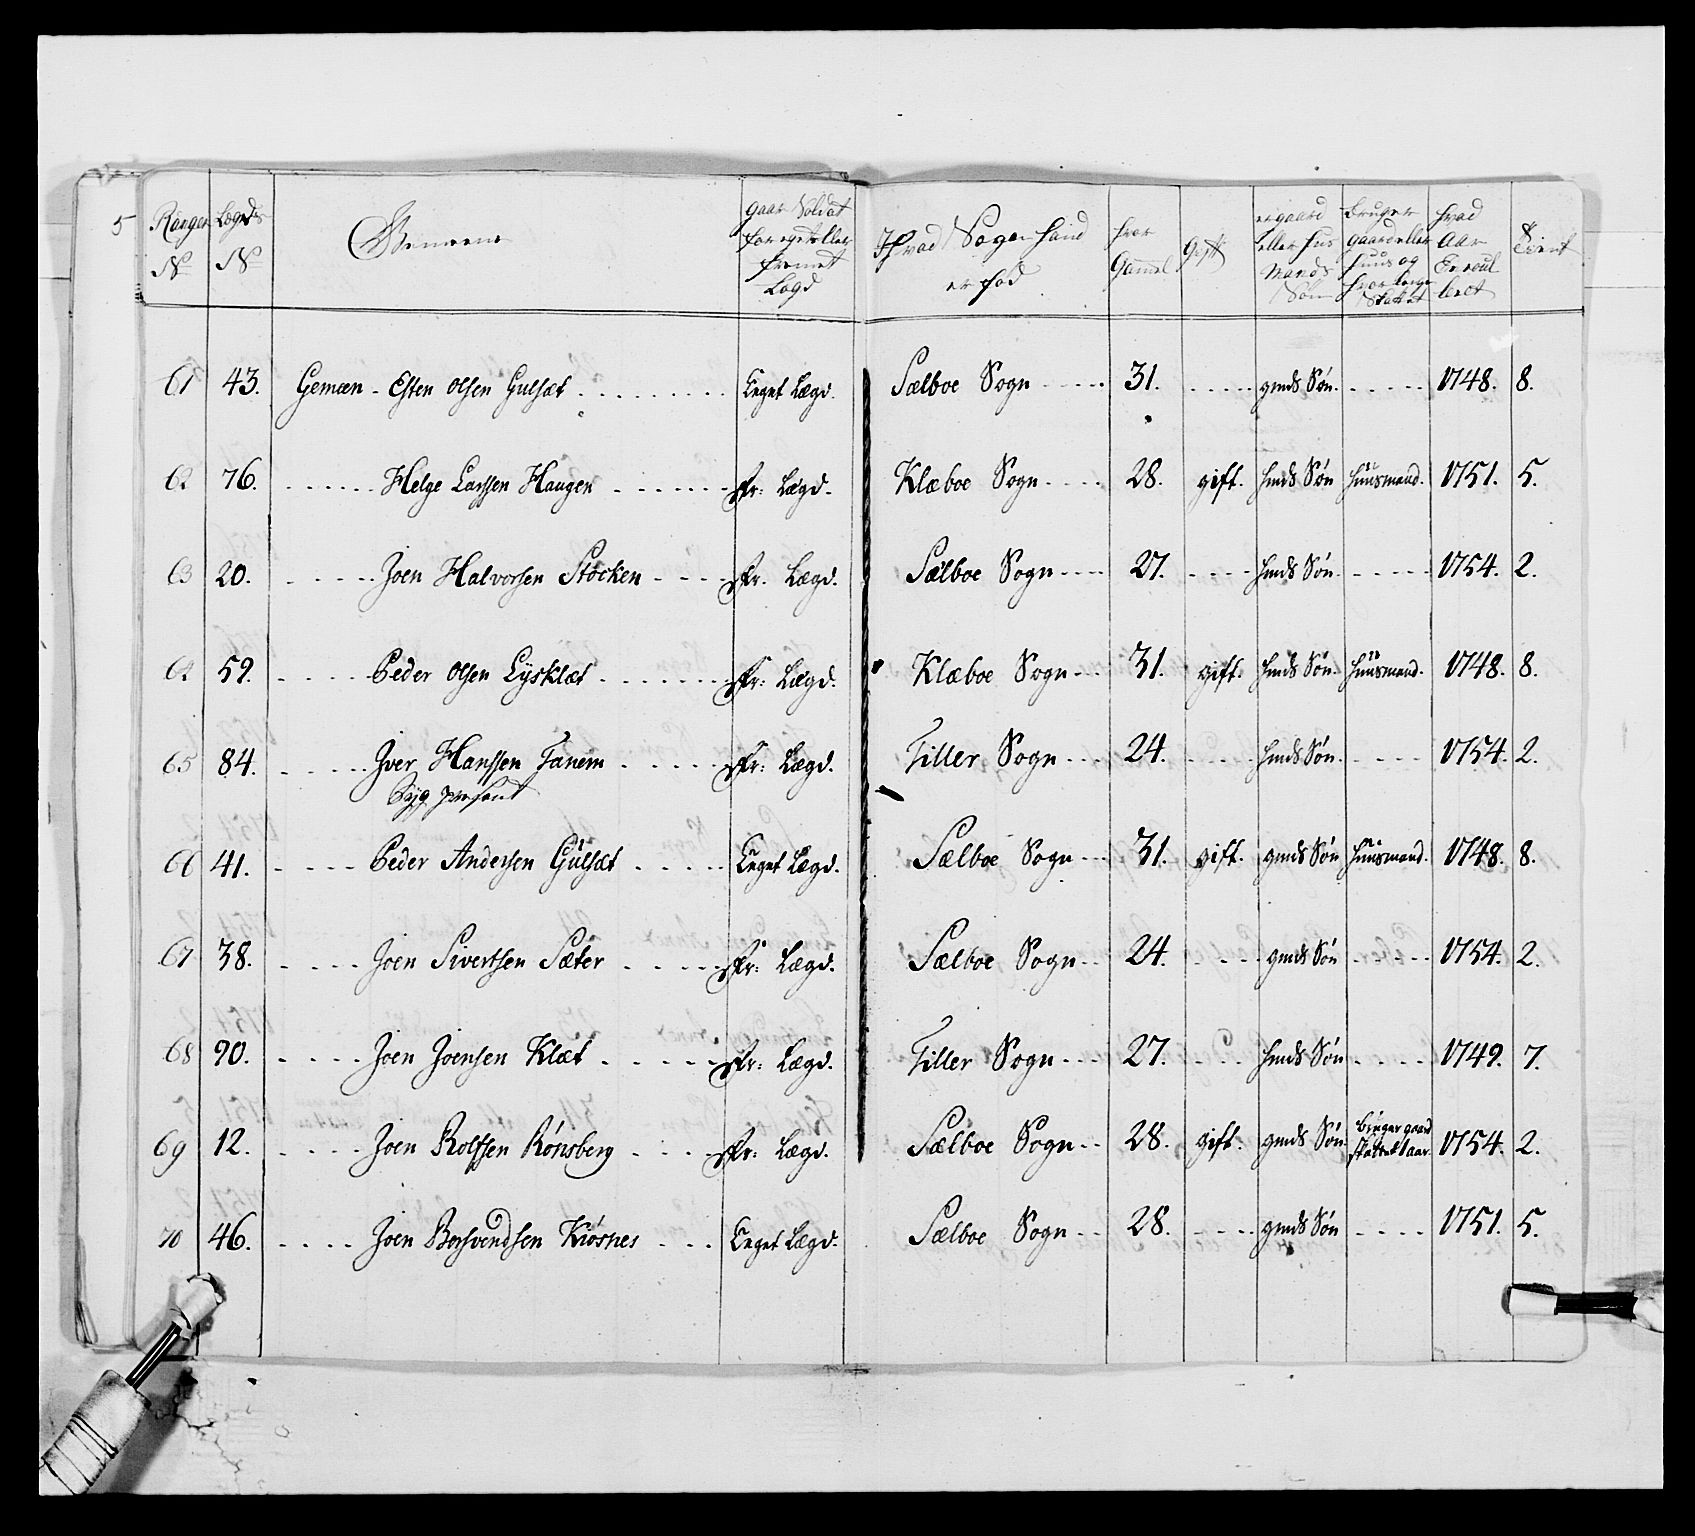 5
Ranger No
Lægds No
Gemeene
gaar Soldat for eget eller fremet Lægd
I hvad Sogen hand er fød
hvor Gammel
Gift
er gaard eller hus Mands Søn
bruger gaard eller huus og hvor længe Skattet
hvad Aar Enroulleret
Tient
61 43. Gemæn - Esten Olsen Gulsæt - - - - Eeget Lægd. Sælboe Sogn - - - - 31. - - - - gmds Søn. - - - - 1748. 8.
62 76. - - - - Helge Larssen Haugen - - - - Fr: Lægd. Klæboe Sogn - - - - 28. gift. hmds Søn huusmand. 1751. 5.
63 20. - - - - Joen Halvorsen Stocken - - - - Fr: Lægd. Sælboe Sogn - - - - 27. - - - - hmds Søn. - - - - 1754. 2.
64 59. - - - - Peder Olsen Lysklæt - - - - Fr: Lægd. Klæboe Sogn - - - 31. gift. hmds Søn. huusmand. 1748. 8.
65 84. - - - - Iver Hanssen Tanem - - - - Fr: Lægd. Tiller Sogn - - - 24. - - - - hmds Søn. - - - - 1754. 2.
66 41. - - - - Peder Andersen Gulsæt - - - - Eeget Lægd. Sælboe Sogn - - - 31. gift. gmds Søn huusmand. 1748. 8.
67 38. - - - - Joen Sivertsen Sæter - - - - Fr: Lægd. Sælboe Sogn - - 24. - - - - gmds Søn - - - - 1754. 2.
68 90. - - - - Joen Joensen Klæt - - - - Fr: Lægd. Tiller Sogn - - - 27. - - - - hmds Søn - - - - 1749. 7.
69 12. - - - - Joen Rolfsen Rønsberg - - - - Fr: Lægd. Sælboe Sogn - - 28. gift. gmds Søn. bruger gaard skattet 1 aar 1754. 2.
70 46. - - - - Joen Kiøsnes - - - Eeget Lægd. Sælboe Sogn - - 28. - - - - gmds Søn - - - - 1751. 5.